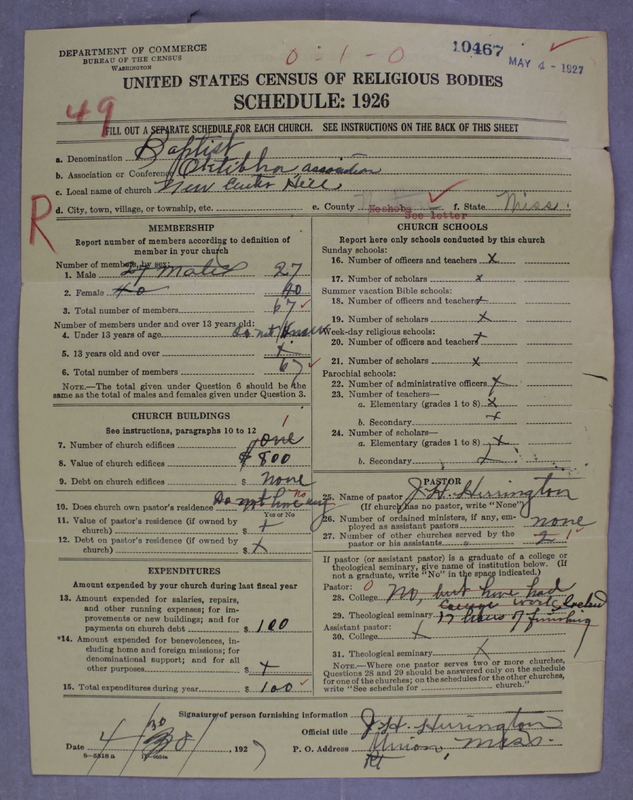 DEPARTMENT OF COMMERCE
BUREAU OF THE CENSUS
WASHINGTON
0-1-0
10467
MAY 4 - 1927
UNITED STATES CENSUS OF RELIGIOUS BODIES
SCHEDULE: 1926
49
FILL OUT A SEPARATE SCHEDULE FOR EACH CHURCH. SEE INSTRUCTIONS ON THE BACK OF THIS SHEET
a. Denomination Baptist
b. Association or Conference association
c. Local name of church New Hill
d. City, town, village, or township, etc.
e. County Neshoba See letter
f. State Miss.
R
MEMBERSHIP
Report number of members according to definition of member in your church
Number of members by sex:
1. Male 27 Males 27
2. Female 40 40
3. Total number of members 67
Number of members under and over 13 years old:
4. Under 13 years of age Do not know
5. 13 years old and over x
6. Total number of members 67
NOTE.—The total given under Question 6 should be the same as the total of males and females given under Question 3.
CHURCH BUILDINGS
See instructions, paragraphs 10 to 12
7. Number of church edifices one 1
8. Value of church edifices $ 800
9. Debt on church edifices $ none
10. Does church own pastor's residence Do not have any no
Yes or No
11. Value of pastor's residence (if owned by church) $ x
12. Debt on pastor's residence (if owned by church) $ x
EXPENDITURES
Amount expended by your church during last fiscal year
13. Amount expended for salaries, repairs, and other running expenses; for improvements or new buildings; and for payments on church debt $ 100
*14. Amount expended for benevolences, including home and foreign missions; for denominational support; and for all other purposes $ x
15. Total expenditures during year $ 100
CHURCH SCHOOLS
Report here only schools conducted by this church
Sunday schools:
16. Number of officers and teachers x
17. Number of scholars x
Summer vacation Bible schools:
18. Number of officers and teachers x
19. Number of scholars x
Week-day religious schools:
20. Number of officers and teachers x
21. Number of scholars x
Parochial schools:
22. Number of administrative officers x
23. Number of teachers—
a. Elementary (grades 1 to 8) x
b. Secondary x
24. Number of scholars—
a. Elementary (grades 1 to 8) x
b. Secondary x
PASTOR
25. Name of pastor J.H. Herrington
(If church has no pastor, write "None")
26. Number of ordained ministers, if any, employed as assistant pastors none
27. Number of other churches served by the pastor or his assistants 2
If pastor (or assistant pastor) is a graduate of a college or theological seminary, give name of institution below. (If not a graduate, write "No" in the space indicated.)
Pastor: 0
28. College No, but have had
college work lacked
29. Theological seminary 17 hours of finishing
Assistant pastor:
30. College x
31. Theological seminary x
NOTE.—Where one pastor serves two or more churches, Questions 28 and 29 should be answered only on the schedule for one of the churches; on the schedules for the other churches, write "See schedule for church."
Signature of person furnishing information J.H. Herrington
Official title
Date 4/30/, 1927
P. O. Address Union Miss.
Rt
8-5518a